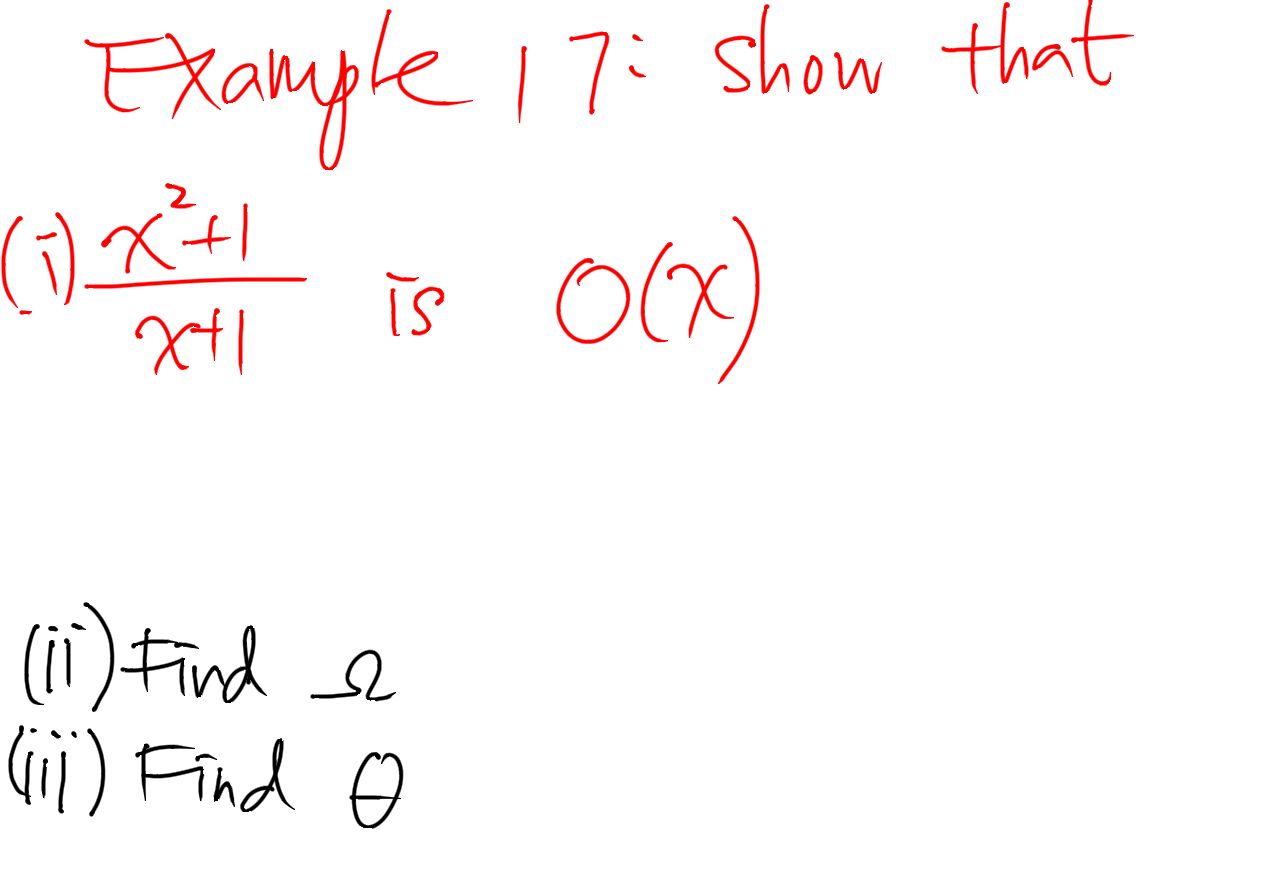 Example 17: show that
(i) x²+1 / x+1 is O(x)
(ii) Find Ω
(iii) Find θ